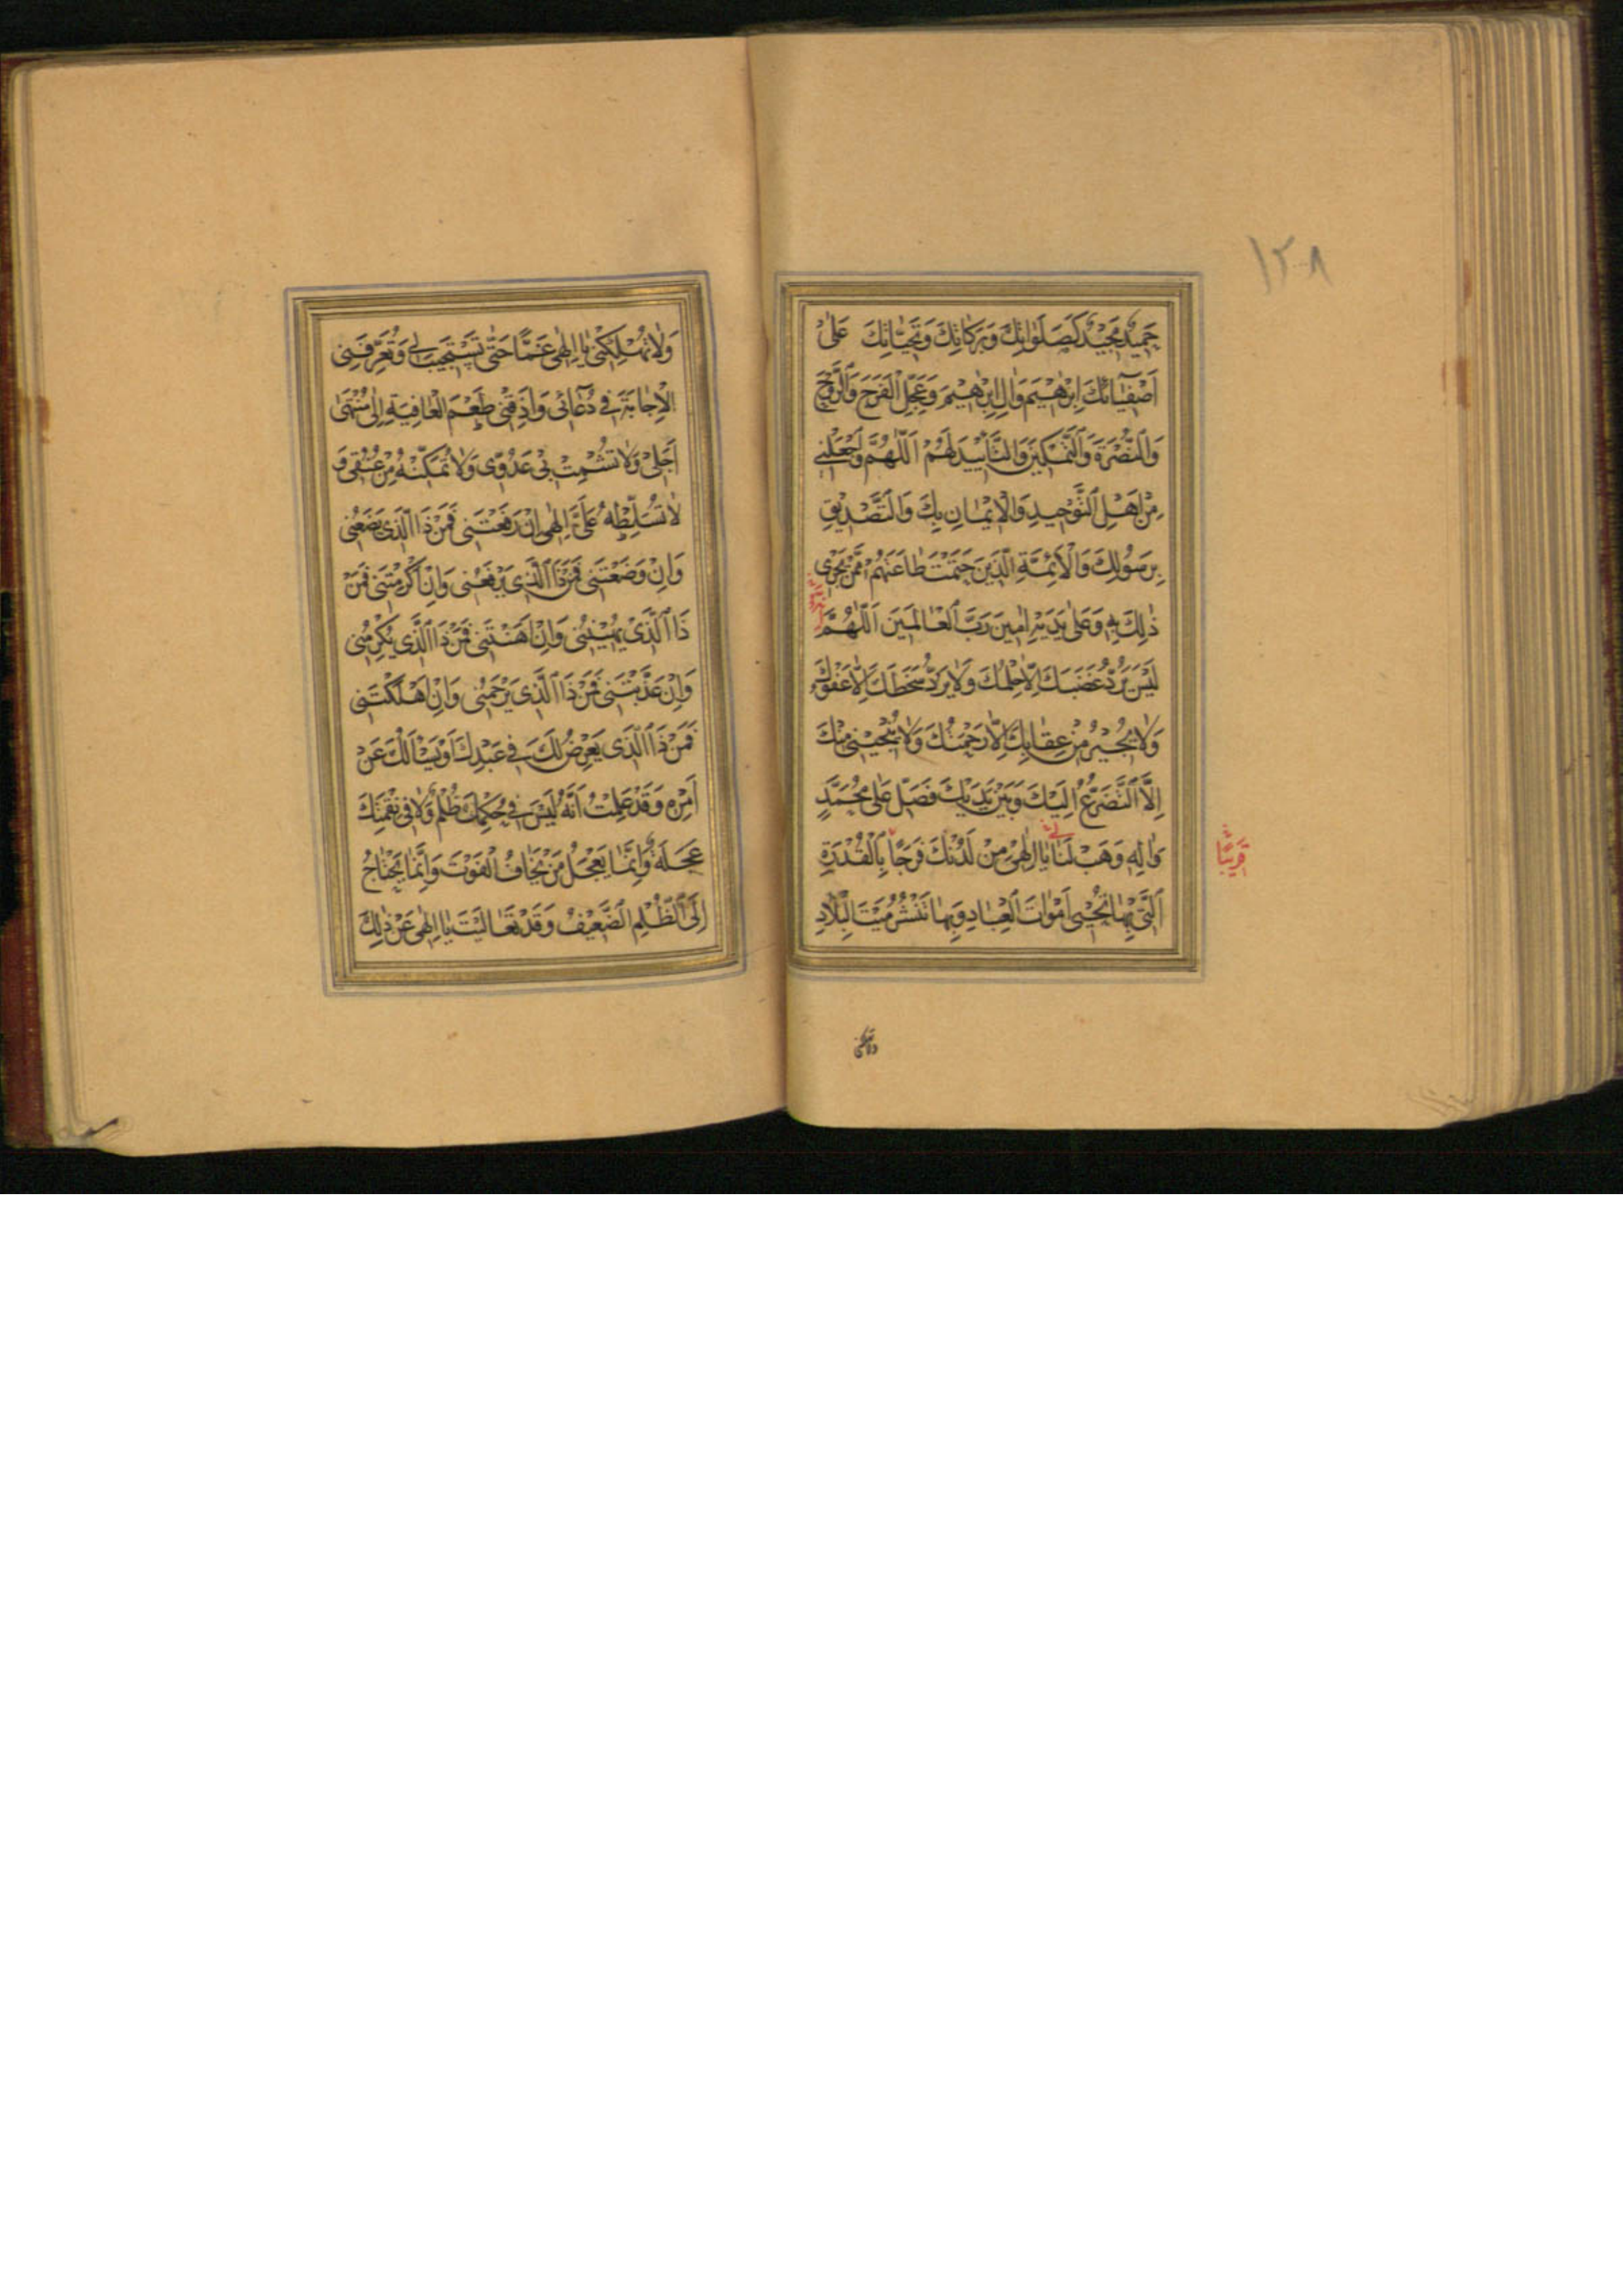 ١٢٨
حَمِيدٌ مَجِيدٌ كَصَلَوَاتِكَ وَبَرَكَاتِكَ وَتَحِيَّاتِكَ عَلىٰ
اَصْفِيَآئِكَ اِبْرٰهِيْمَ وَاٰلِ اِبْرٰهِيْمَ وَعَجِّلِ الْفَرَجَ وَالرَّوْحَ
وَالنُّصْرَةَ وَالتَّمْكِينَ وَالتَّأْيِيدَ لَهُمْ اَللّٰهُمَّ وَاجْعَلْنِي
مِنْ اَهْلِ التَّوْحِيدِ وَالْاِيْمَانِ بِكَ وَالتَّصْدِيْقِ
بِرَسُولِكَ وَالْاَئِمَّةِ الَّذِينَ حَتَمْتَ طَاعَتَهُمْ مِمَّنْ يَجْرِي
ذٰلِكَ بِهِ وَعَلىٰ يَدَيْهِ اٰمِينَ رَبَّ الْعَالَمِينَ اَللّٰهُمَّ
لَيْسَ يَرُدُّ غَضَبَكَ اِلَّا حِلْمُكَ وَلَا يَرُدُّ سَخَطَكَ اِلَّا عَفْوُكَ
وَلَا يُجِيْرُ مِنْ عِقَابِكَ اِلَّا رَحْمَتُكَ وَلَا يُنْجِيْنِي مِنْكَ
اِلَّا التَّضَرُّعُ اِلَيْكَ وَبَيْنَ يَدَيْكَ فَصَلِّ عَلىٰ مُحَمَّدٍ
وَاٰلِهِ وَهَبْ لَنَا يَا اِلٰهِي مِنْ لَدُنْكَ فَرَجًا بِالْقُدْرَةِ
لي
قَرِيبًا
الَّتِي بِهَا تُحْيِي اَمْوَاتَ الْعِبَادِ وَبِهَا تَنْشُرُ مَيْتَ الْبِلَادِ
ولا تهلكني
وَلَا تُهْلِكْنِي يَا اِلٰهِي غَمًّا حَتّٰى تَسْتَجِيبَ لِي وَتُعَرِّفَنِي
الْاِجَابَةَ فِي دُعَآئِي وَاَذِقْنِي طَعْمَ الْعَافِيَةِ اِلٰى مُنْتَهٰى
اَجَلِي وَلَا تُشْمِتْ بِي عَدُوِّي وَلَا تُمَكِّنْهُ مِنْ عُنُقِي وَ
لَا تُسَلِّطْهُ عَلَيَّ اِلٰهِي اِنْ رَفَعْتَنِي فَمَنْ ذَا الَّذِي يَضَعُنِي
وَاِنْ وَضَعْتَنِي فَمَنْ ذَا الَّذِي يَرْفَعُنِي وَاِنْ اَكْرَمْتَنِي فَمَنْ
ذَا الَّذِي يُهِيْنُنِي وَاِنْ اَهَنْتَنِي فَمَنْ ذَا الَّذِي يُكْرِمُنِي
وَاِنْ عَذَّبْتَنِي فَمَنْ ذَا الَّذِي يَرْحَمُنِي وَاِنْ اَهْلَكْتَنِي
فَمَنْ ذَا الَّذِي يَعْرِضُ لَكَ فِي عَبْدِكَ اَوْ يَسْاَلُكَ عَنْ
اَمْرِهِ وَقَدْ عَلِمْتُ اَنَّهُ لَيْسَ فِي حُكْمِكَ ظُلْمٌ وَلَا فِي نِقْمَتِكَ
عَجَلَةٌ وَاِنَّمَا يَعْجَلُ مَنْ يَخَافُ الْفَوْتَ وَاِنَّمَا يَحْتَاجُ
اِلَى الظُّلْمِ الضَّعِيْفُ وَقَدْ تَعَالَيْتَ يَا اِلٰهِي عَنْ ذٰلِكَ